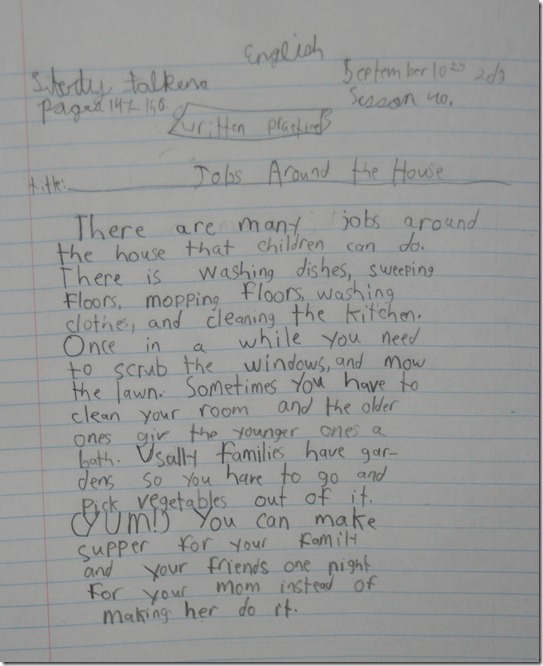 English
Sturdy talkers September 10 20
pages 147-150 Sesson 40.
Written practice
title: Jobs Around the House
There are many jobs around
the house that children can do.
There is washing dishes, sweeping
floors, mopping floors, washing
clothes, and cleaning the kitchen.
Once in a while you need
to scrub the windows, and mow
the lawn. Sometimes you have to
clean your room and the older
ones giv the younger ones a
bath. Usally families have gar-
dens so you have to go and
pick vegetables out of it.
(YUM!) You can make
supper for your family
and your friends one night
for your mom instead of
making her do it.